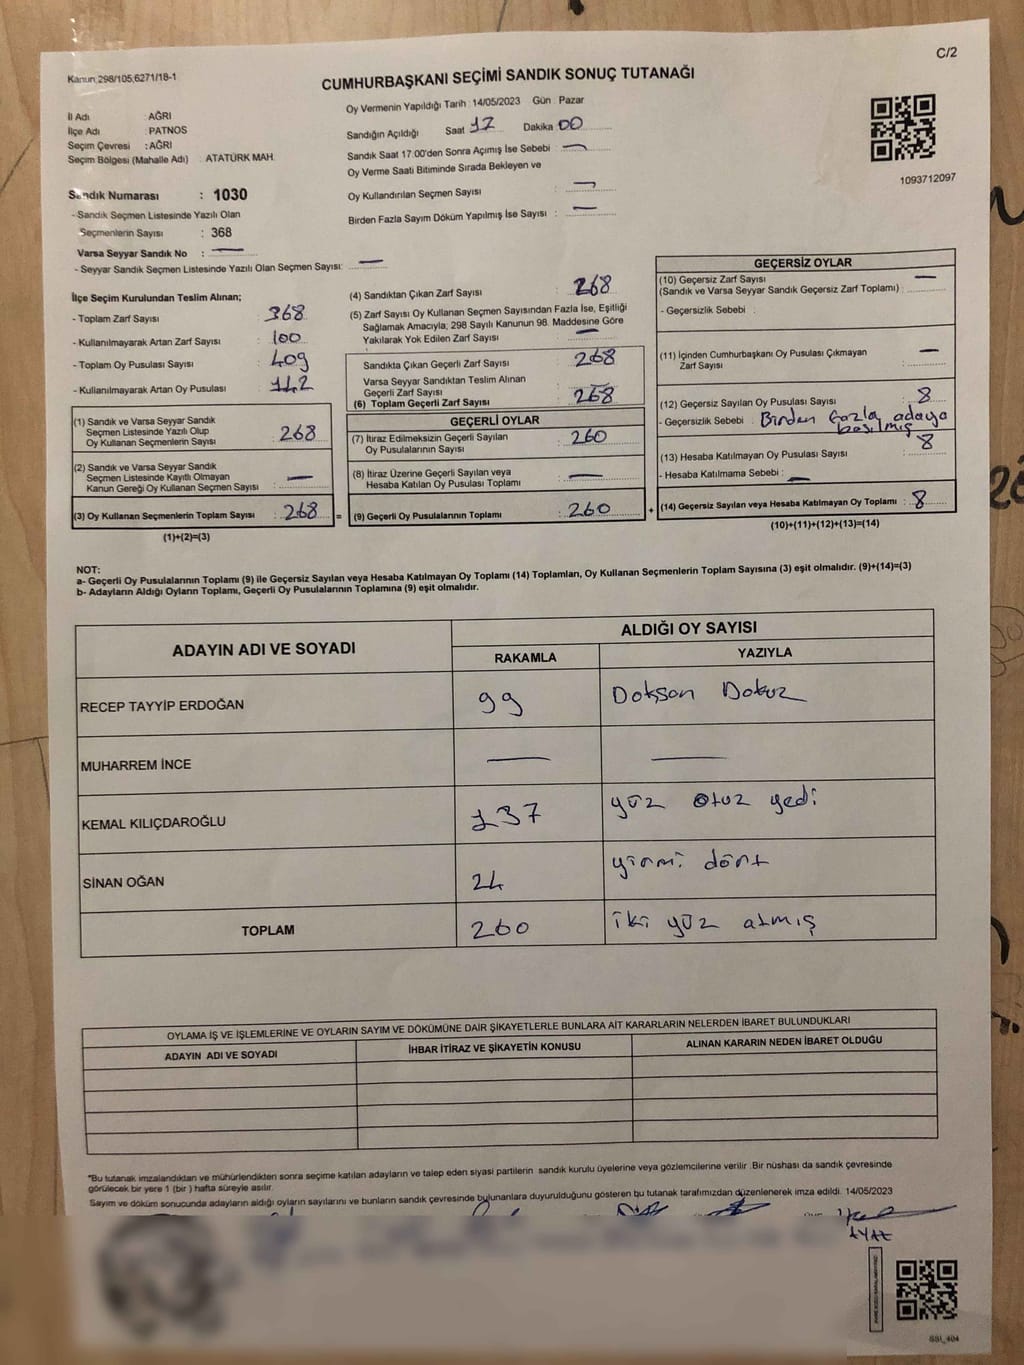 C/2
Kanun:298/105,6271/18-1
CUMHURBAŞKANI SEÇİMİ SANDIK SONUÇ TUTANAĞI
İl Adı : AĞRI
İlçe Adı : PATNOS
Seçim Çevresi : AĞRI
Seçim Bölgesi (Mahalle Adı) : ATATÜRK MAH.
Sandık Numarası : 1030
- Sandık Seçmen Listesinde Yazılı Olan
Seçmenlerin Sayısı : 368
Varsa Seyyar Sandık No : —
- Seyyar Sandık Seçmen Listesinde Yazılı Olan Seçmen Sayısı: —
Oy Vermenin Yapıldığı Tarih : 14/05/2023 Gün : Pazar
Sandığın Açıldığı Saat 17 Dakika 00
Sandık Saat 17:00'den Sonra Açımış İse Sebebi : —
Oy Verme Saati Bitiminde Sırada Bekleyen ve
Oy Kullandırılan Seçmen Sayısı : —
Birden Fazla Sayım Döküm Yapılmış İse Sayısı : —
1093712097
İlçe Seçim Kurulundan Teslim Alınan;
- Toplam Zarf Sayısı : 368
- Kullanılmayarak Artan Zarf Sayısı : 100
- Toplam Oy Pusulası Sayısı : 409
- Kullanılmayarak Artan Oy Pusulası : 142
(1) Sandık ve Varsa Seyyar Sandık
Seçmen Listesinde Yazılı Olup
Oy Kullanan Seçmenlerin Sayısı : 268
(2) Sandık ve Varsa Seyyar Sandık
Seçmen Listesinde Kayıtlı Olmayan
Kanun Gereği Oy Kullanan Seçmen Sayısı : —
(3) Oy Kullanan Seçmenlerin Toplam Sayısı : 268 =
(1)+(2)=(3)
(4) Sandıktan Çıkan Zarf Sayısı : 268
(5) Zarf Sayısı Oy Kullanan Seçmen Sayısından Fazla İse, Eşitliği
Sağlamak Amacıyla; 298 Sayılı Kanunun 98. Maddesine Göre
Yakılarak Yok Edilen Zarf Sayısı : —
Sandıkta Çıkan Geçerli Zarf Sayısı : 268
Varsa Seyyar Sandıktan Teslim Alınan
Geçerli Zarf Sayısı : —
(6) Toplam Geçerli Zarf Sayısı : 268
GEÇERLİ OYLAR
(7) İtiraz Edilmeksizin Geçerli Sayılan
Oy Pusulalarının Sayısı : 260
(8) İtiraz Üzerine Geçerli Sayılan veya
Hesaba Katılan Oy Pusulası Toplamı : —
(9) Geçerli Oy Pusulalarının Toplamı : 260 +
GEÇERSİZ OYLAR
(10) Geçersiz Zarf Sayısı
(Sandık ve Varsa Seyyar Sandık Geçersiz Zarf Toplamı) : —
- Geçersizlik Sebebi :
(11) İçinden Cumhurbaşkanı Oy Pusulası Çıkmayan
Zarf Sayısı : —
(12) Geçersiz Sayılan Oy Pusulası Sayısı : 8
- Geçersizlik Sebebi : Birden fazla adaya
basılmış
(13) Hesaba Katılmayan Oy Pusulası Sayısı : 8
- Hesaba Katılmama Sebebi : —
(14) Geçersiz Sayılan veya Hesaba Katılmayan Oy Toplamı : 8
(10)+(11)+(12)+(13)=(14)
NOT:
a- Geçerli Oy Pusulalarının Toplamı (9) ile Geçersiz Sayılan veya Hesaba Katılmayan Oy Toplamı (14) Toplamları, Oy Kullanan Seçmenlerin Toplam Sayısına (3) eşit olmalıdır. (9)+(14)=(3)
b- Adayların Aldığı Oyların Toplamı, Geçerli Oy Pusulalarının Toplamına (9) eşit olmalıdır.
ADAYIN ADI VE SOYADI ALDIĞI OY SAYISI
RAKAMLA YAZIYLA
RECEP TAYYİP ERDOĞAN 99 Dokson Dokuz
MUHARREM İNCE — —
KEMAL KILIÇDAROĞLU 137 yüz otuz yedi
SİNAN OĞAN 24 yirmi dört
TOPLAM 260 iki yüz atmış
OYLAMA İŞ VE İŞLEMLERİNE VE OYLARIN SAYIM VE DÖKÜMÜNE DAİR ŞİKAYETLERLE BUNLARA AİT KARARLARIN NELERDEN İBARET BULUNDUKLARI
ADAYIN ADI VE SOYADI İHBAR İTİRAZ VE ŞİKAYETİN KONUSU ALINAN KARARIN NEDEN İBARET OLDUĞU
*Bu tutanak imzalandıktan ve mühürlendikten sonra seçime katılan adayların ve talep eden siyasi partilerin sandık kurulu üyelerine veya gözlemcilerine verilir .Bir nüshası da sandık çevresinde
görülecek bir yere 1 (bir ) hafta süreyle asılır.
Sayım ve döküm sonucunda adayların aldığı oyların sayılarını ve bunların sandık çevresinde bulunanlara duyurulduğunu gösteren bu tutanak tarafımızdan düzenlenerek imza edildi. 14/05/2023
AYAZ
SSI_404